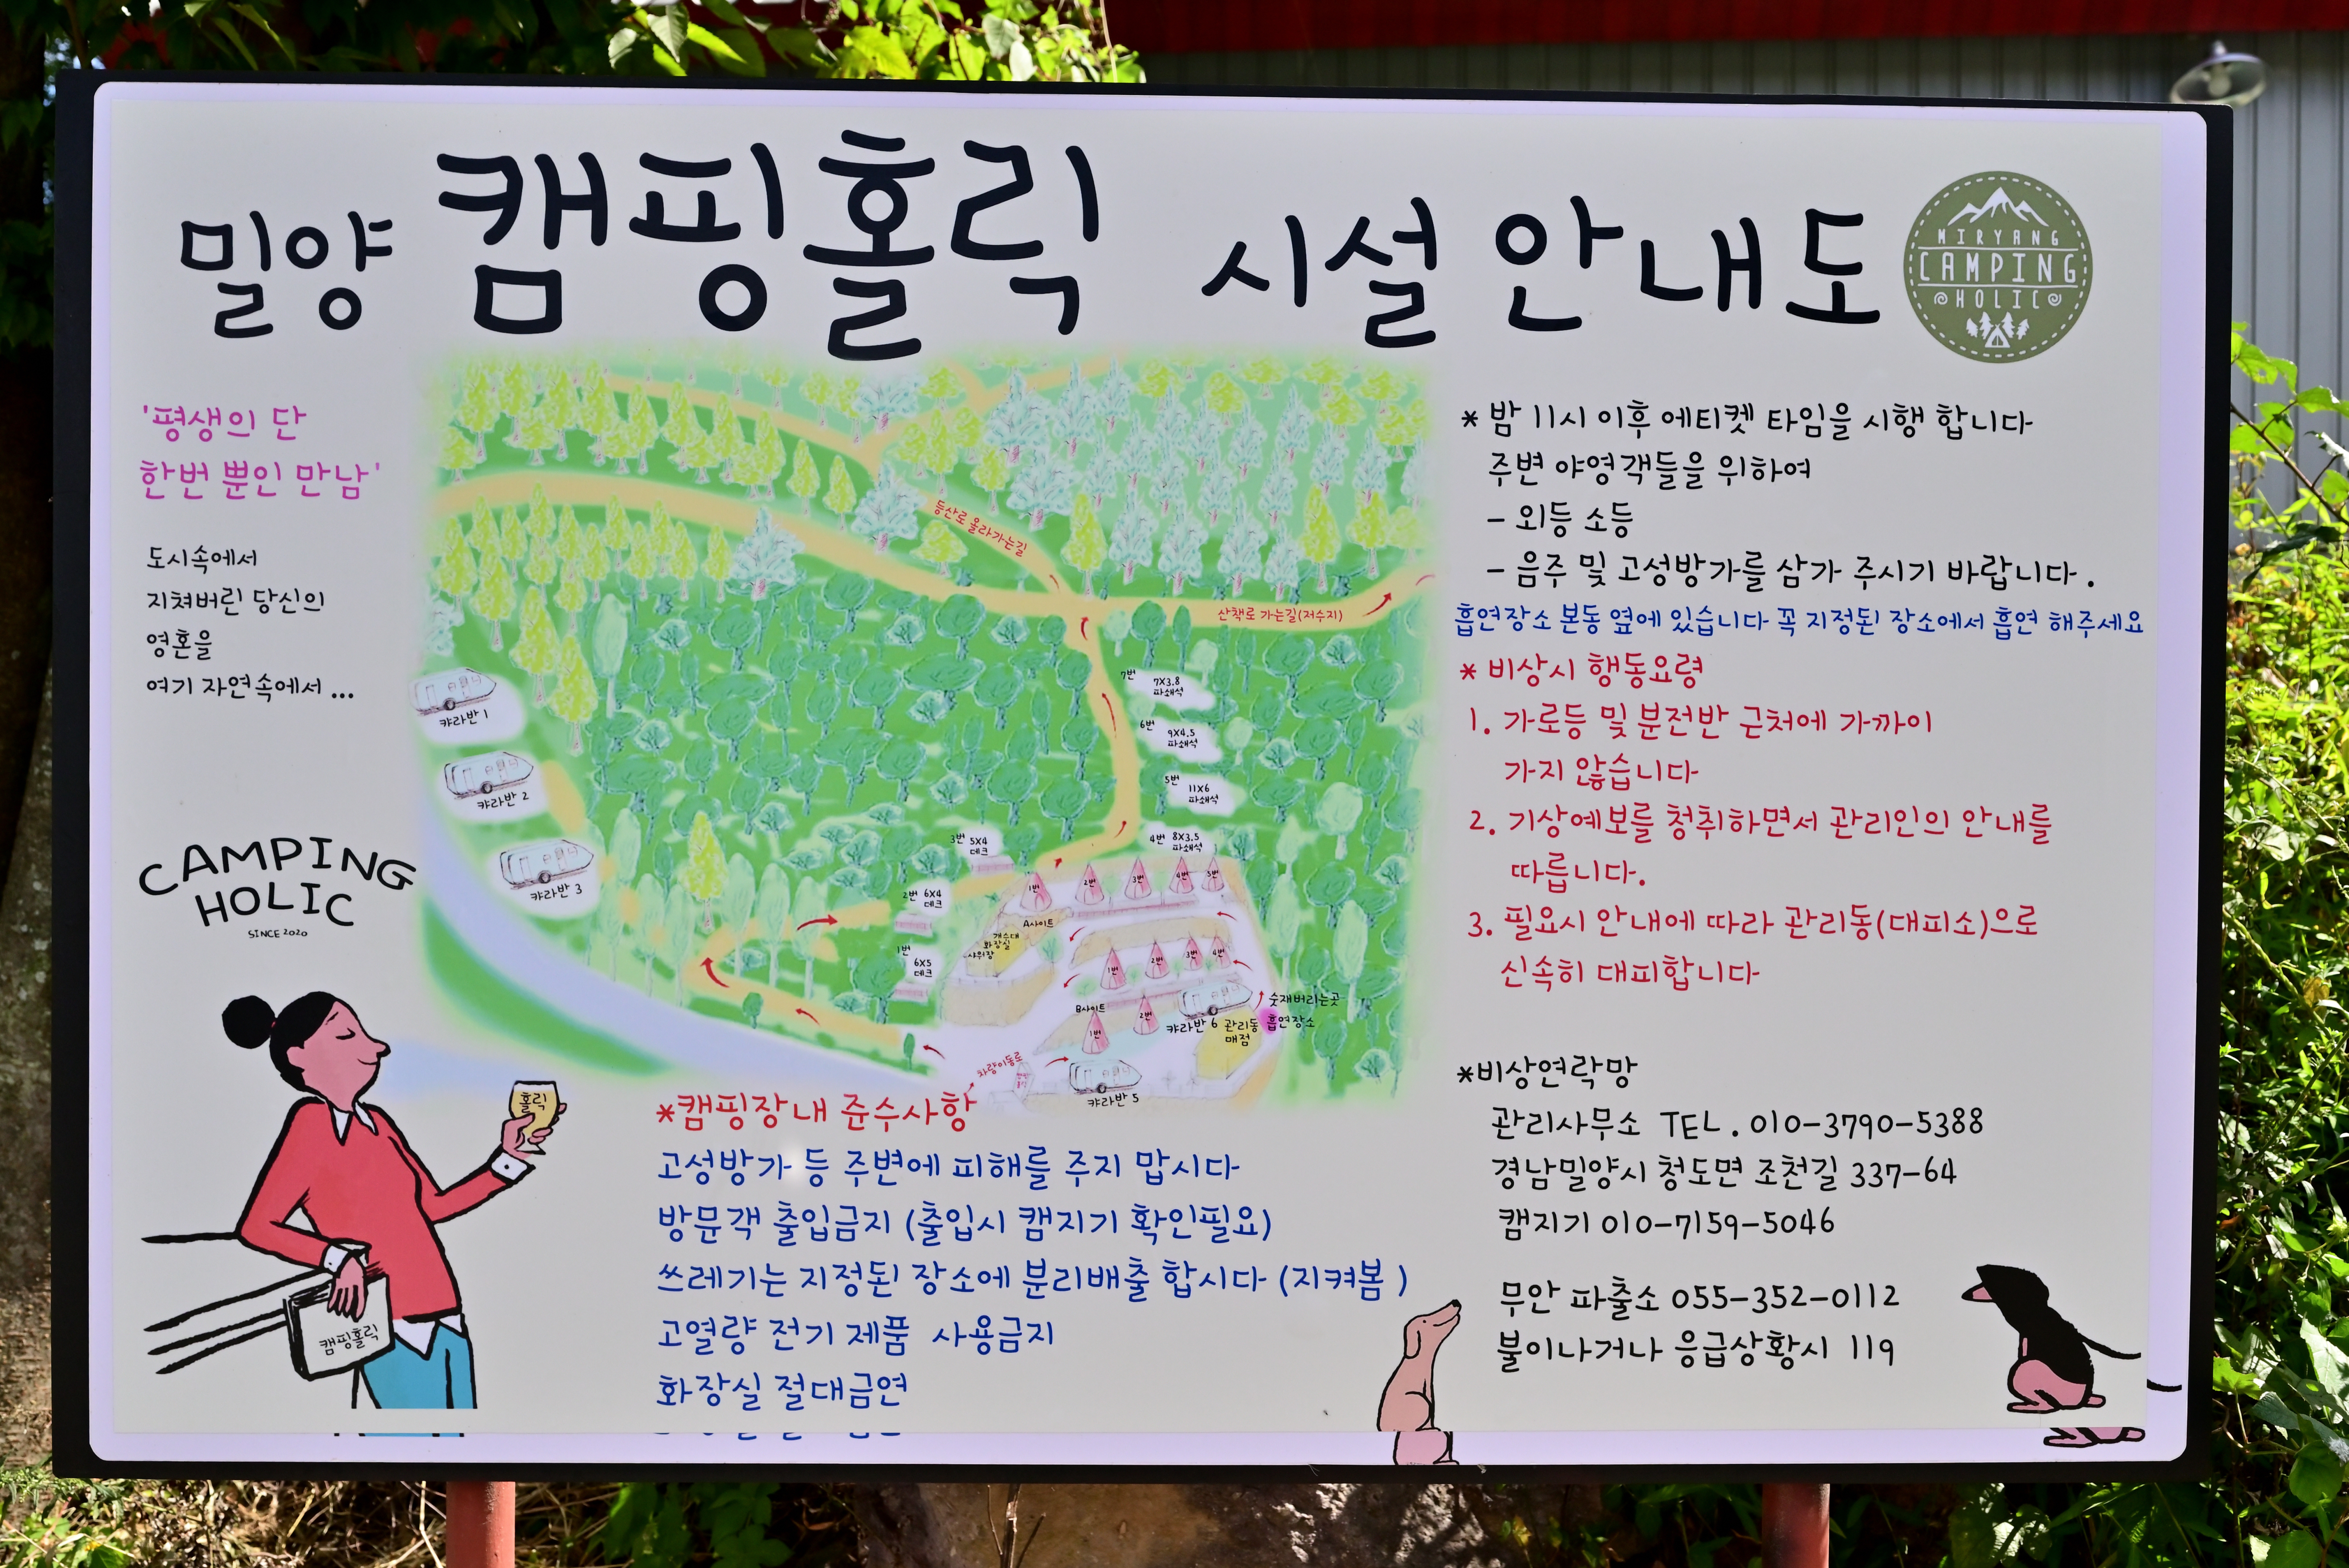 밀양 캠핑홀릭 시설 안내도
MIRYANG
CAMPING
HOLIC
'평생의 단
한번 뿐인 만남'
도시속에서
지쳐버린 당신의
영혼을
여기 자연속에서 ...
CAMPING
HOLIC
SINCE 2020
홀릭
캠핑홀릭
등산로 올라가는길
산책로 가는길(저수지)
캬라반 1
캬라반 2
캬라반 3
7번 7X3.8
파쇄석
6번 9X4.5
파쇄석
5번 11X6
파쇄석
4번 8X3.5
파쇄석
3번 5X4
데크
2번 6X4
데크
1번 6X5
데크
1번 2번 3번 4번 5번
A사이트
개수대
화장실
샤워장
1번 2번 3번 4번
B사이트
1번 2번
캬라반 6
관리동
매점
숯재버리는곳
흡연장소
차량이동로
캬라반 5
*캠핑장내 준수사항
고성방가 등 주변에 피해를 주지 맙시다
방문객 출입금지 (출입시 캠지기 확인필요)
쓰레기는 지정된 장소에 분리배출 합시다 (지켜봄 )
고열량 전기 제품 사용금지
화장실 절대금연
* 밤 11시 이후 에티켓 타임을 시행 합니다
주변 야영객들을 위하여
- 외등 소등
- 음주 및 고성방가를 삼가 주시기 바랍니다 .
흡연장소 본동 옆에 있습니다 꼭 지정된 장소에서 흡연 해주세요
* 비상시 행동요령
1. 가로등 및 분전반 근처에 가까이
가지 않습니다
2. 기상예보를 청취하면서 관리인의 안내를
따릅니다.
3. 필요시 안내에 따라 관리동(대피소)으로
신속히 대피합니다
*비상연락망
관리사무소 TEL . 010-3790-5388
경남밀양시 청도면 조천길 337-64
캠지기 010-7159-5046
무안 파출소 055-352-0112
불이나거나 응급상황시 119